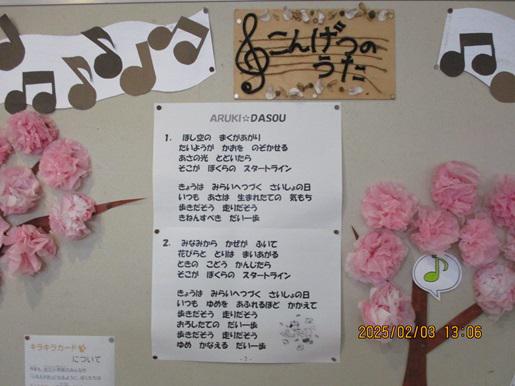 こんげつの
うた
ARUKI☆DASOU
1. ほし空の まくがあがり
たいようが かおを のぞかせる
あさの光 とどいたら
そこが ぼくらの スタートライン
きょうは みらいへつづく さいしょの日
いつも あさは 生まれたての 気もち
歩きだそう 走りだそう
きねんすべき だい一歩
2. みなみから かぜが ふいて
花びらと とりは まいあがる
ときの こどう かんじたら
そこが ぼくらの スタートライン
きょうは みらいへつづく さいしょの日
いつも ゆめを あふれるほど かかえて
歩きだそう 走りだそう
おろしたての だい一歩
歩きだそう 走りだそう
ゆめ かなえる だい一歩
- 1 -
キラキラカード
について
2025/02/03 13:06